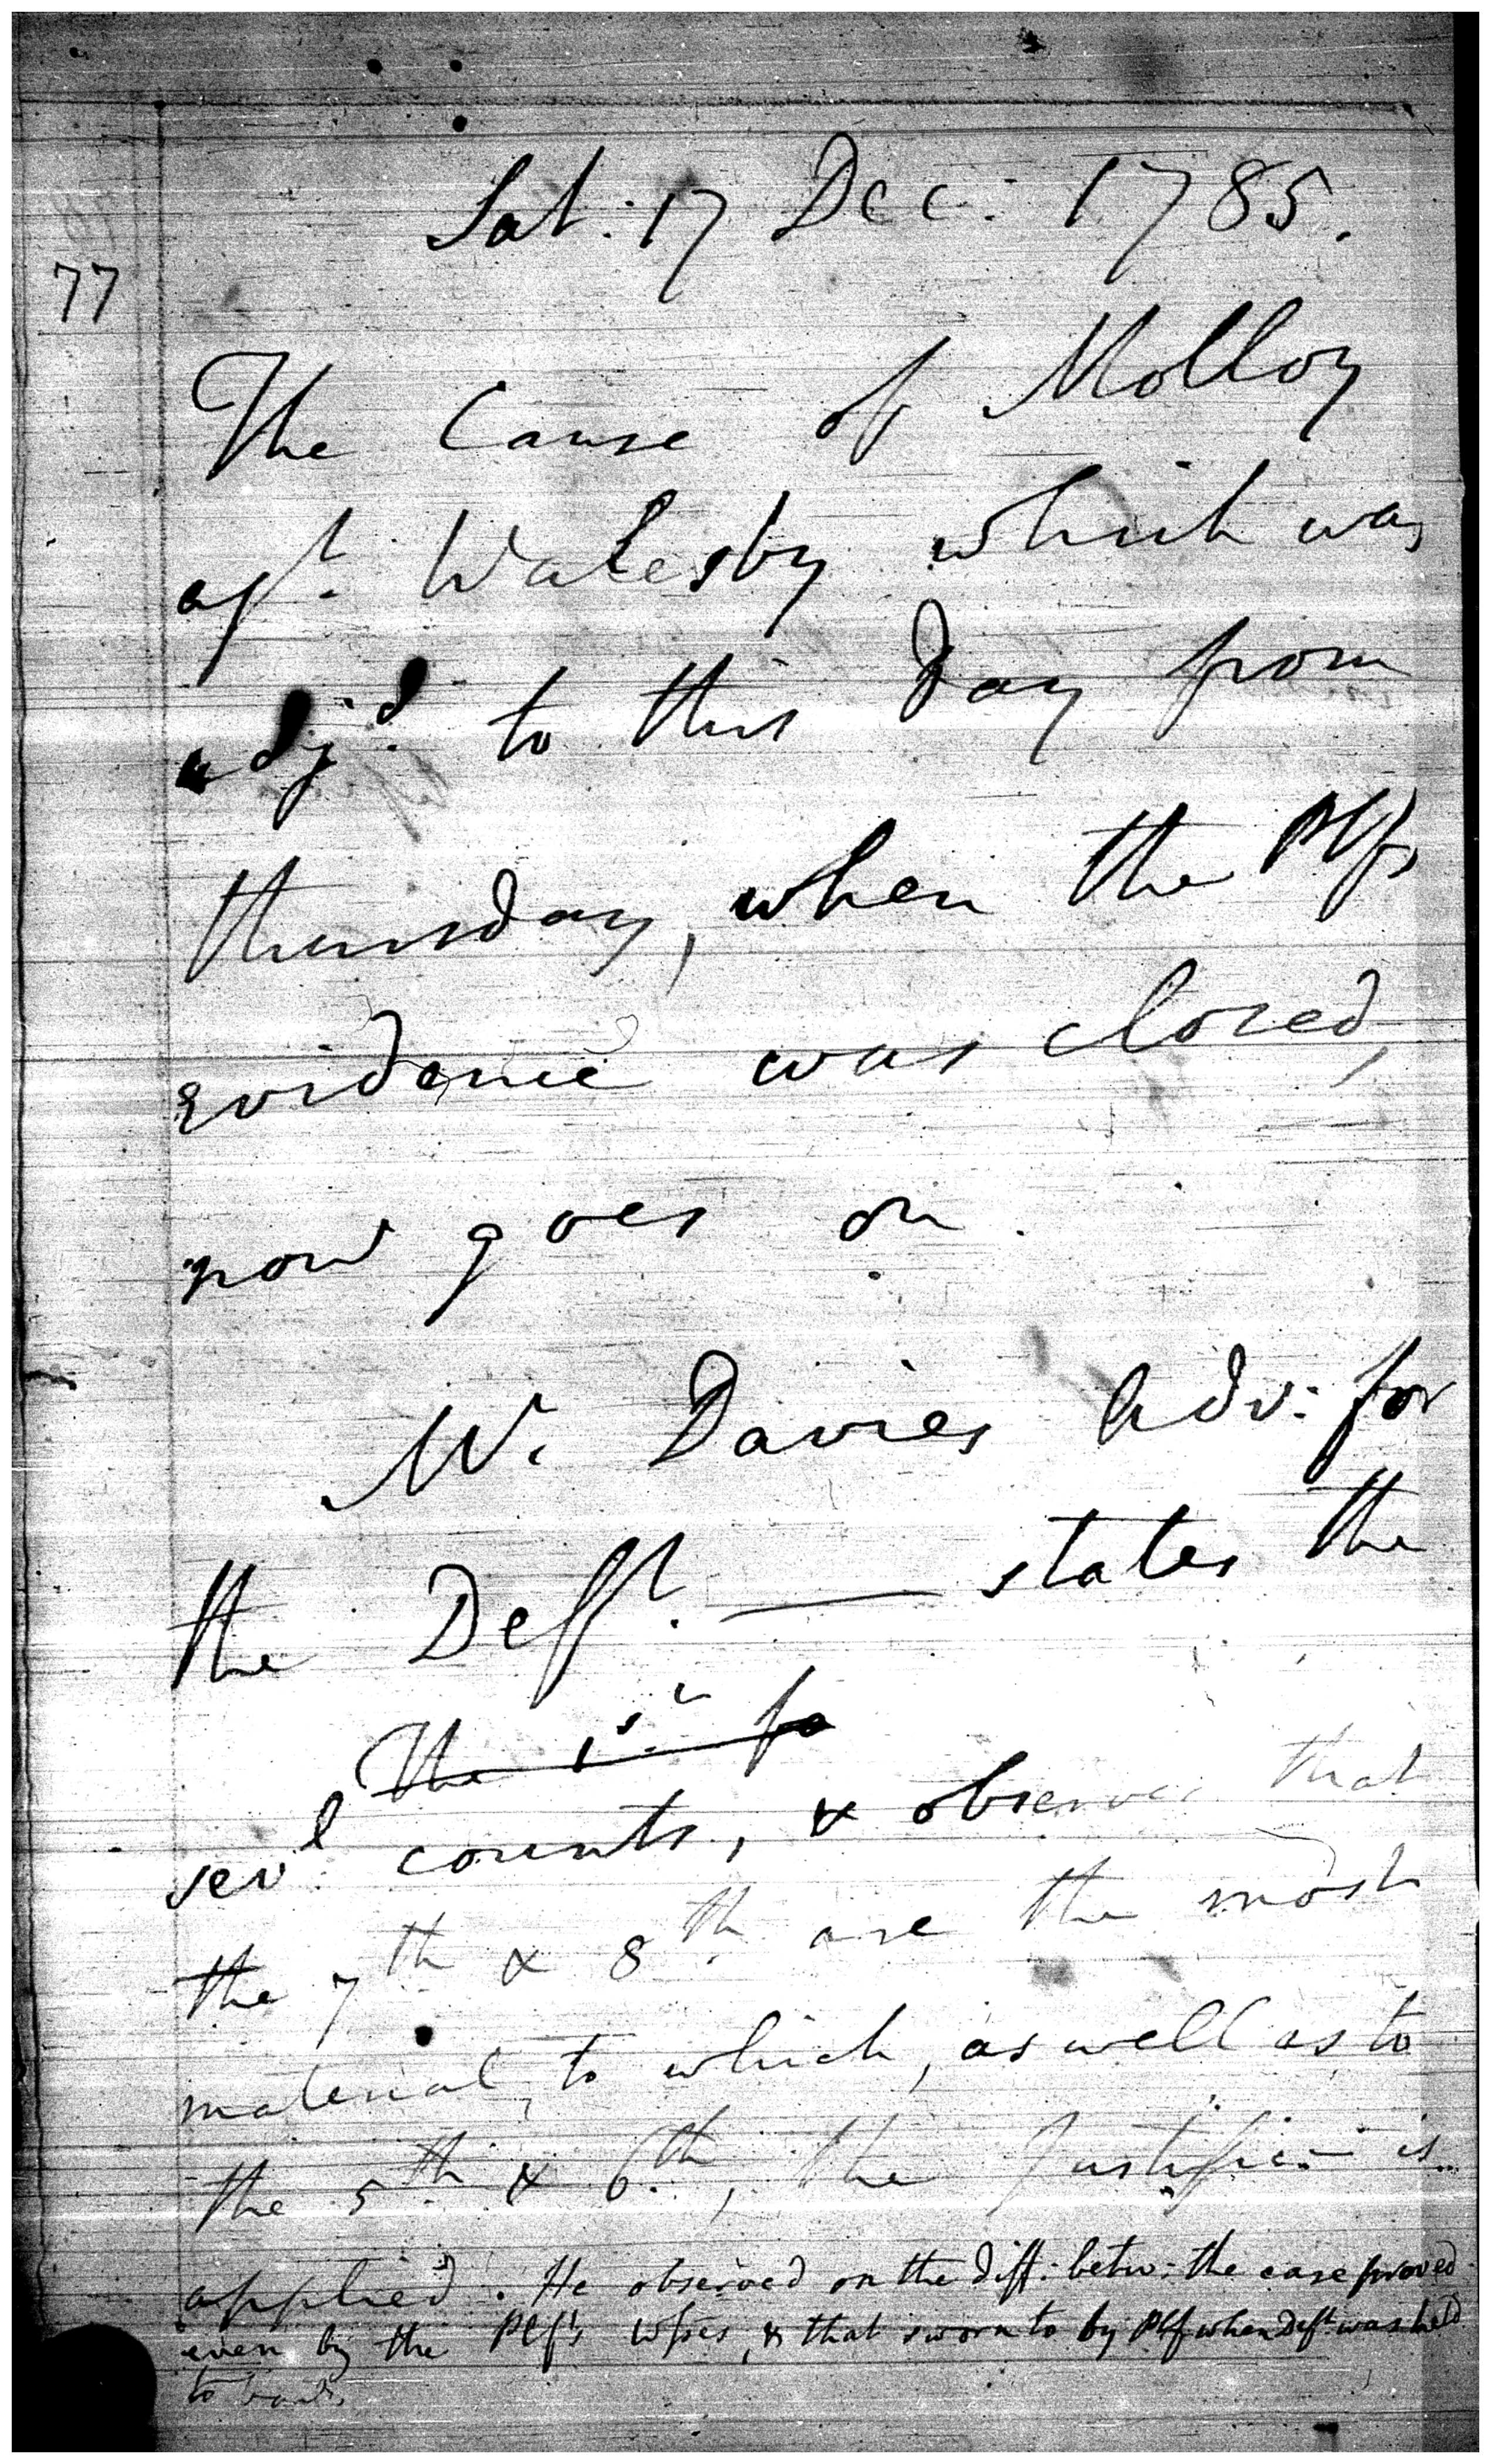 Sat: 17 Dec: 1785.
77
The Cause of Molloy
agt. Walesby which was
adj:d. to this Day from
thursday, when the Plfs
evidence was closed,
now goes on.
Mr. Davies Adv: for
the Defft. — states the
The 1st. fo
sevl. counts, & observes that
the 7th & 8th. are the most
material, to which, as well as to
the 5th. & 6th., the Justific:— is
applied. He observed on the diff: betw: the case proved
even by the Plf's Wsses, & that sworn to by Plf when Deft. was held
to bail.